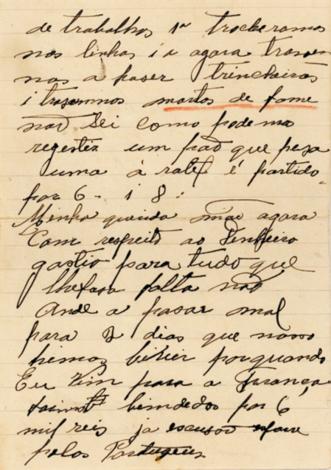 de trabalhos 1º trocheramos
nos linhas i a agora trase
nos a faser trincheiras
i trasemnos mortos de fome
naõ sei como podemos
regestir um paõ que peza
uma á ratel é partido
por 6 - 1 8 :
Minha querida maõ agora
Com respeito ao Dinheiro
gastio para tudo que
lhefasa falta naõ
Ande a pasar mal
para 2 dias que novos
hemos beber porquando
Eu vim para a França
bindedos por 6
mil reis ja escuso
pelos Portugueis